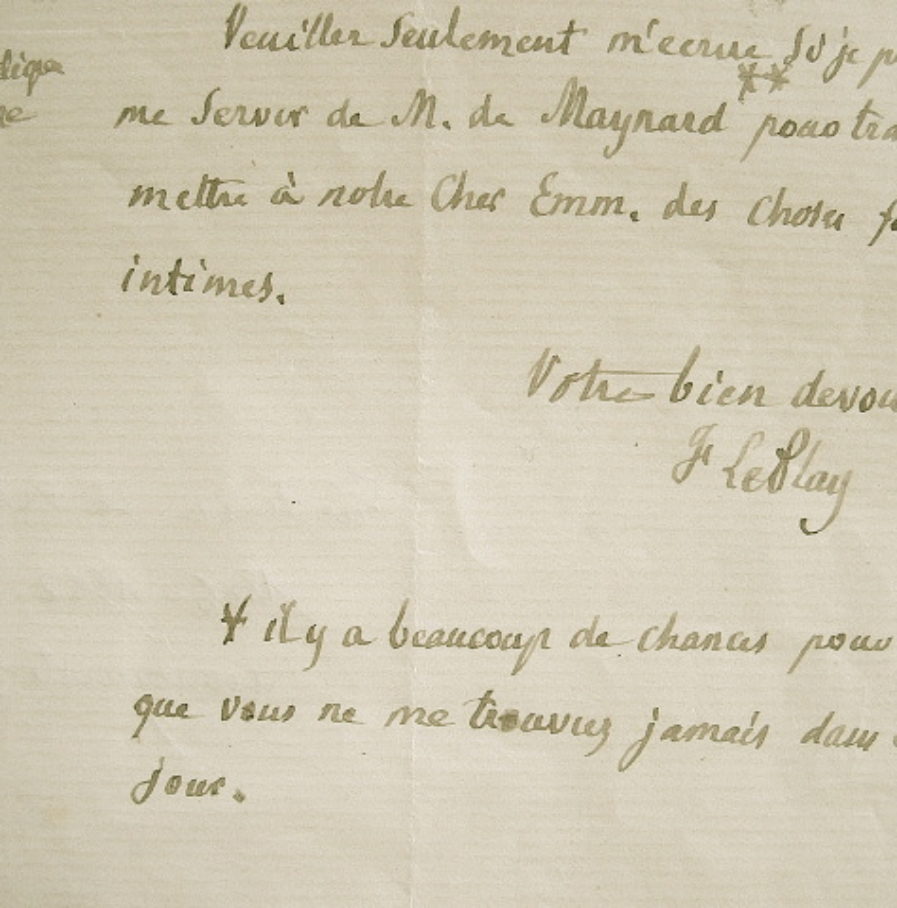 Veuillez seulement m'ecrire si je p
dique
me servir de M. de Maynard ** pour tra
re
mettre à notre Cher Emm. des choses f
intimes.
Votre bien devou
F LePlay
* il y a beaucoup de chances pour
que vous ne me trouviez jamais dans
jour.